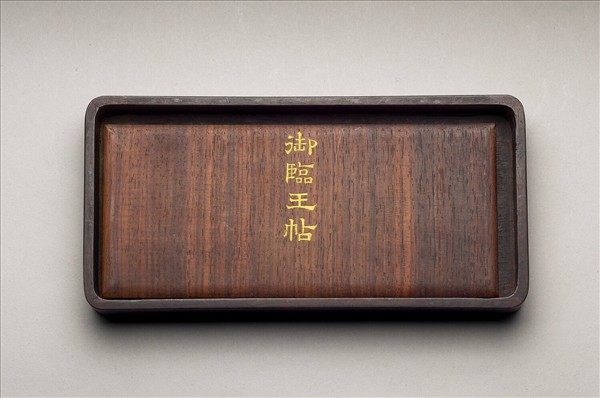 御臨王帖